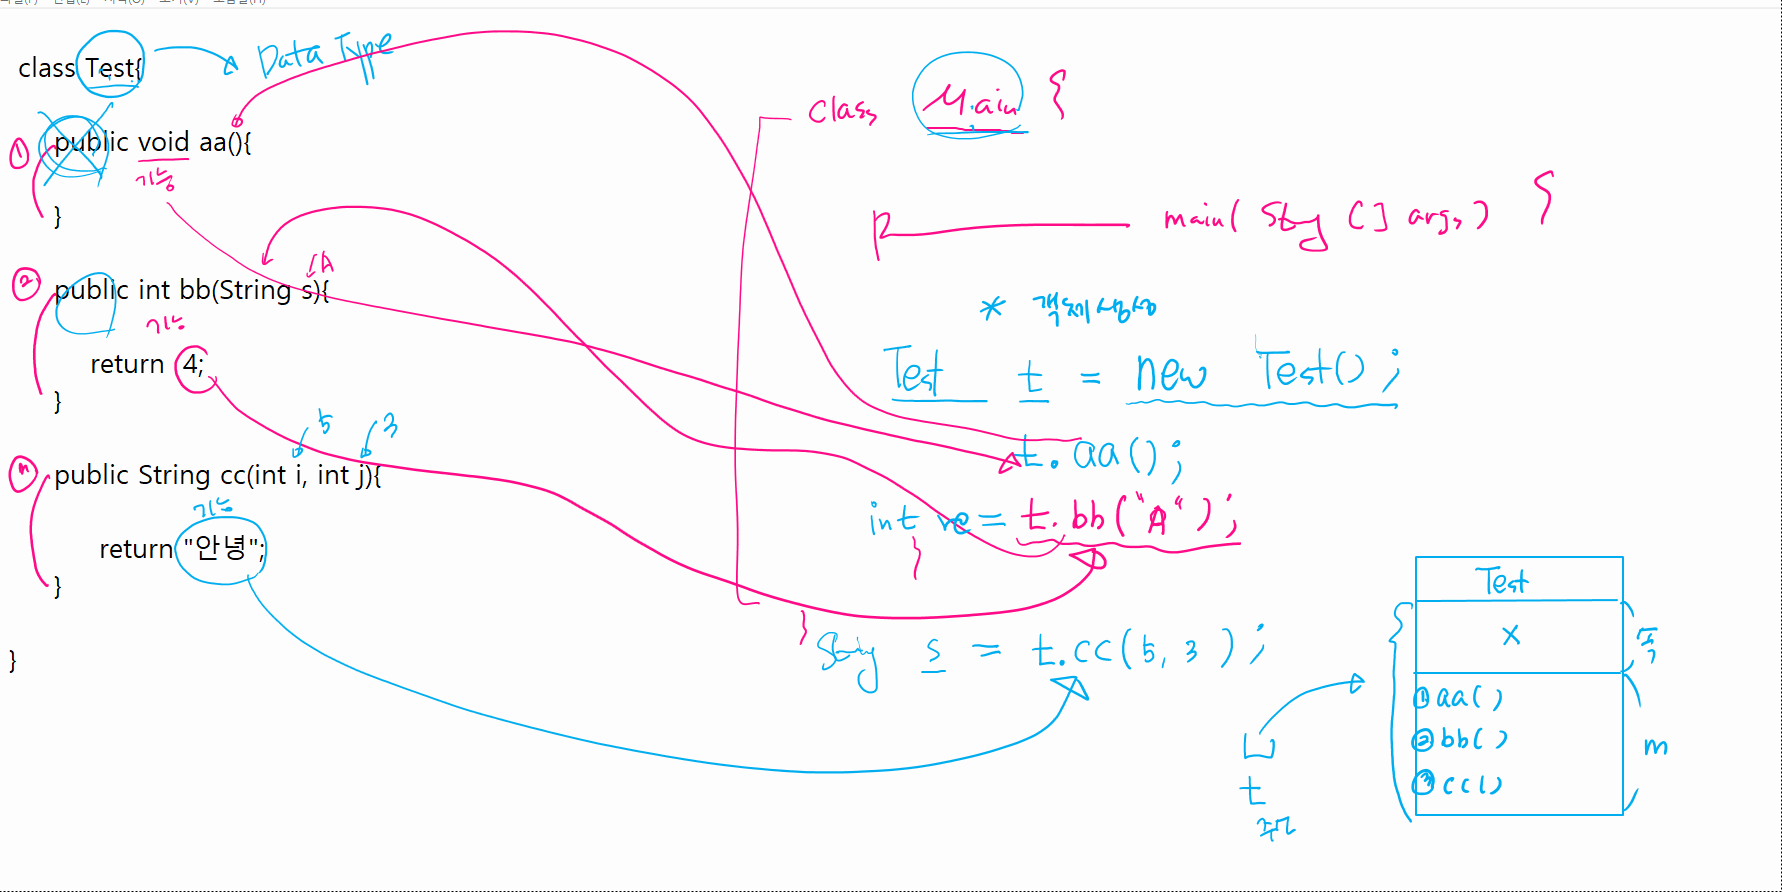 class Test{
Data Type
① public void aa(){
기능
}
② public int bb(String s){
A
기능
return 4;
}
5 3
public String cc(int i, int j){
기능
return "안녕";
}
}
class Main {
main( String [] args ) {
* 객체생성
Test t = new Test() ;
t.aa() ;
int re = t.bb("A") ;
}
}
String s = t.cc(5, 3) ;
t
주소
Test
X
속
① aa()
② bb()
③ cc()
m